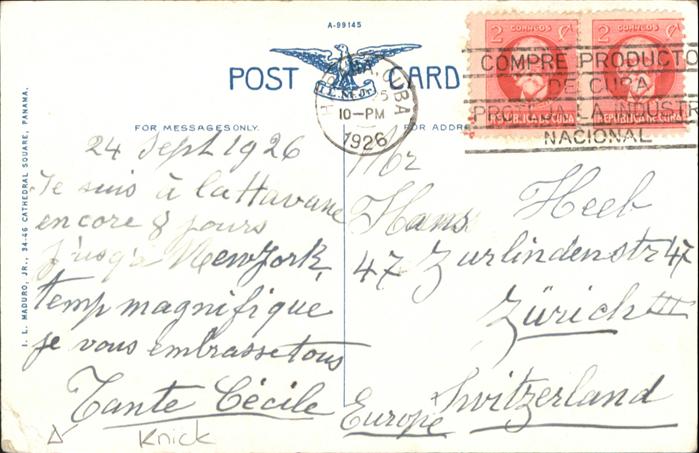 A-99145
POST CARD
I. L. M. Jr.
FOR MESSAGES ONLY.
FOR ADDR
I. L. MADURO, JR., 34-46 CATHEDRAL SQUARE, PANAMA.
2 CORREOS
2 CORREOS
REPUBLICA DE CUBA
REPUBLICA DE CUBA
CUBA
10-PM
1926
COMPRE PRODUCTO
DE CUBA
PROTEJA LA INDUSTR
NACIONAL
24 Sept 1926
Je suis à la Havane
encore 8 jours
jusqu'à New York,
temp magnifique
je vous embrasse tous
Tante Cécile
Knick
Mr
Hans Heeb
47 Zurlindenstr 47
Zürich III
Switzerland
Europe